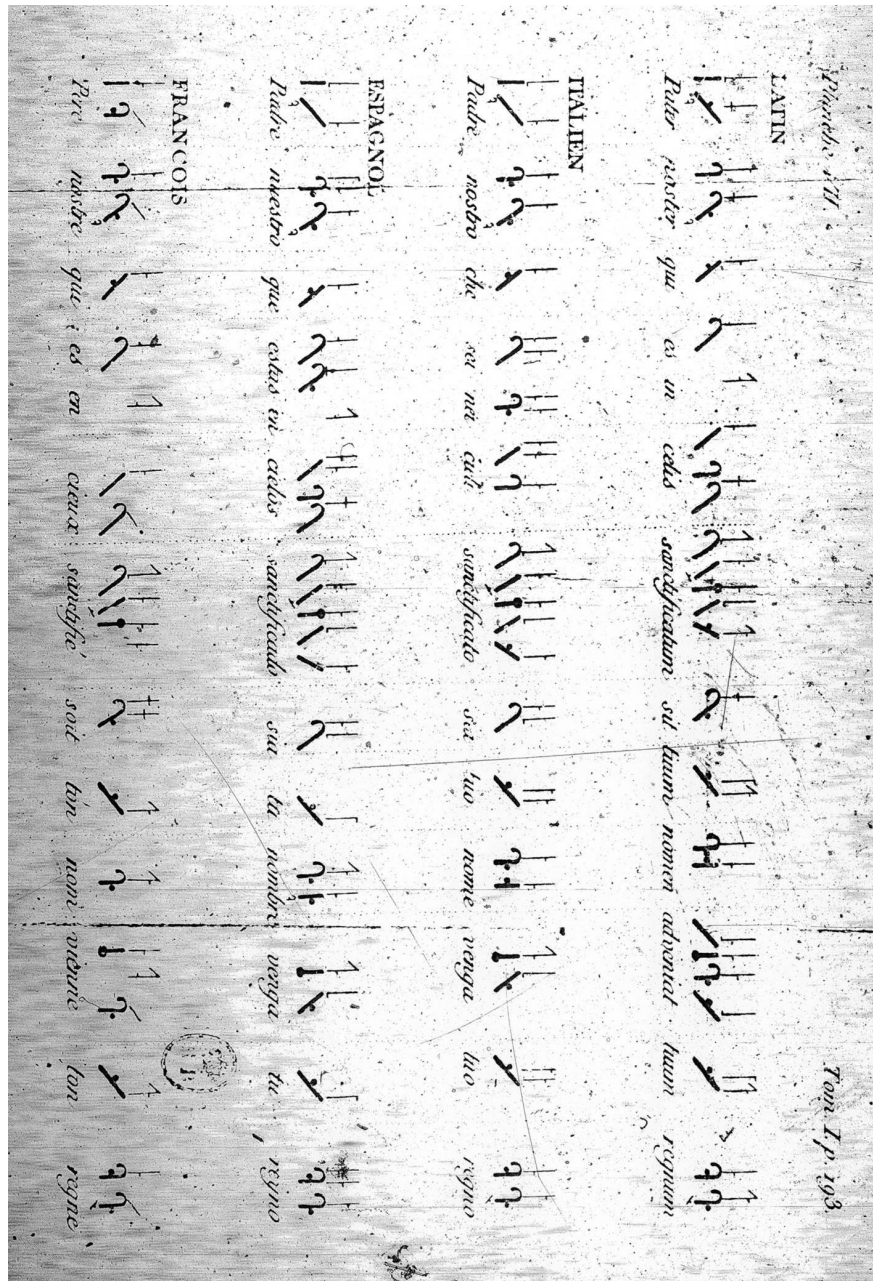 Planche XII.
Tom I. p. 193
LATIN
Pater noster qui es in celis sanctificatum sit tuum nomen adveniat tuum regnum
ITALIEN
Padre nostro che sei nei cieli sanctificato sia tuo nome venga tuo regno
ESPAGNOL
Padre nuestro que estas in cielos sanctificado sia tu nombre venga tu reyno
FRANCOIS
Pere nostre qui es en cieux sanctifié soit ton nom vienne ton regne